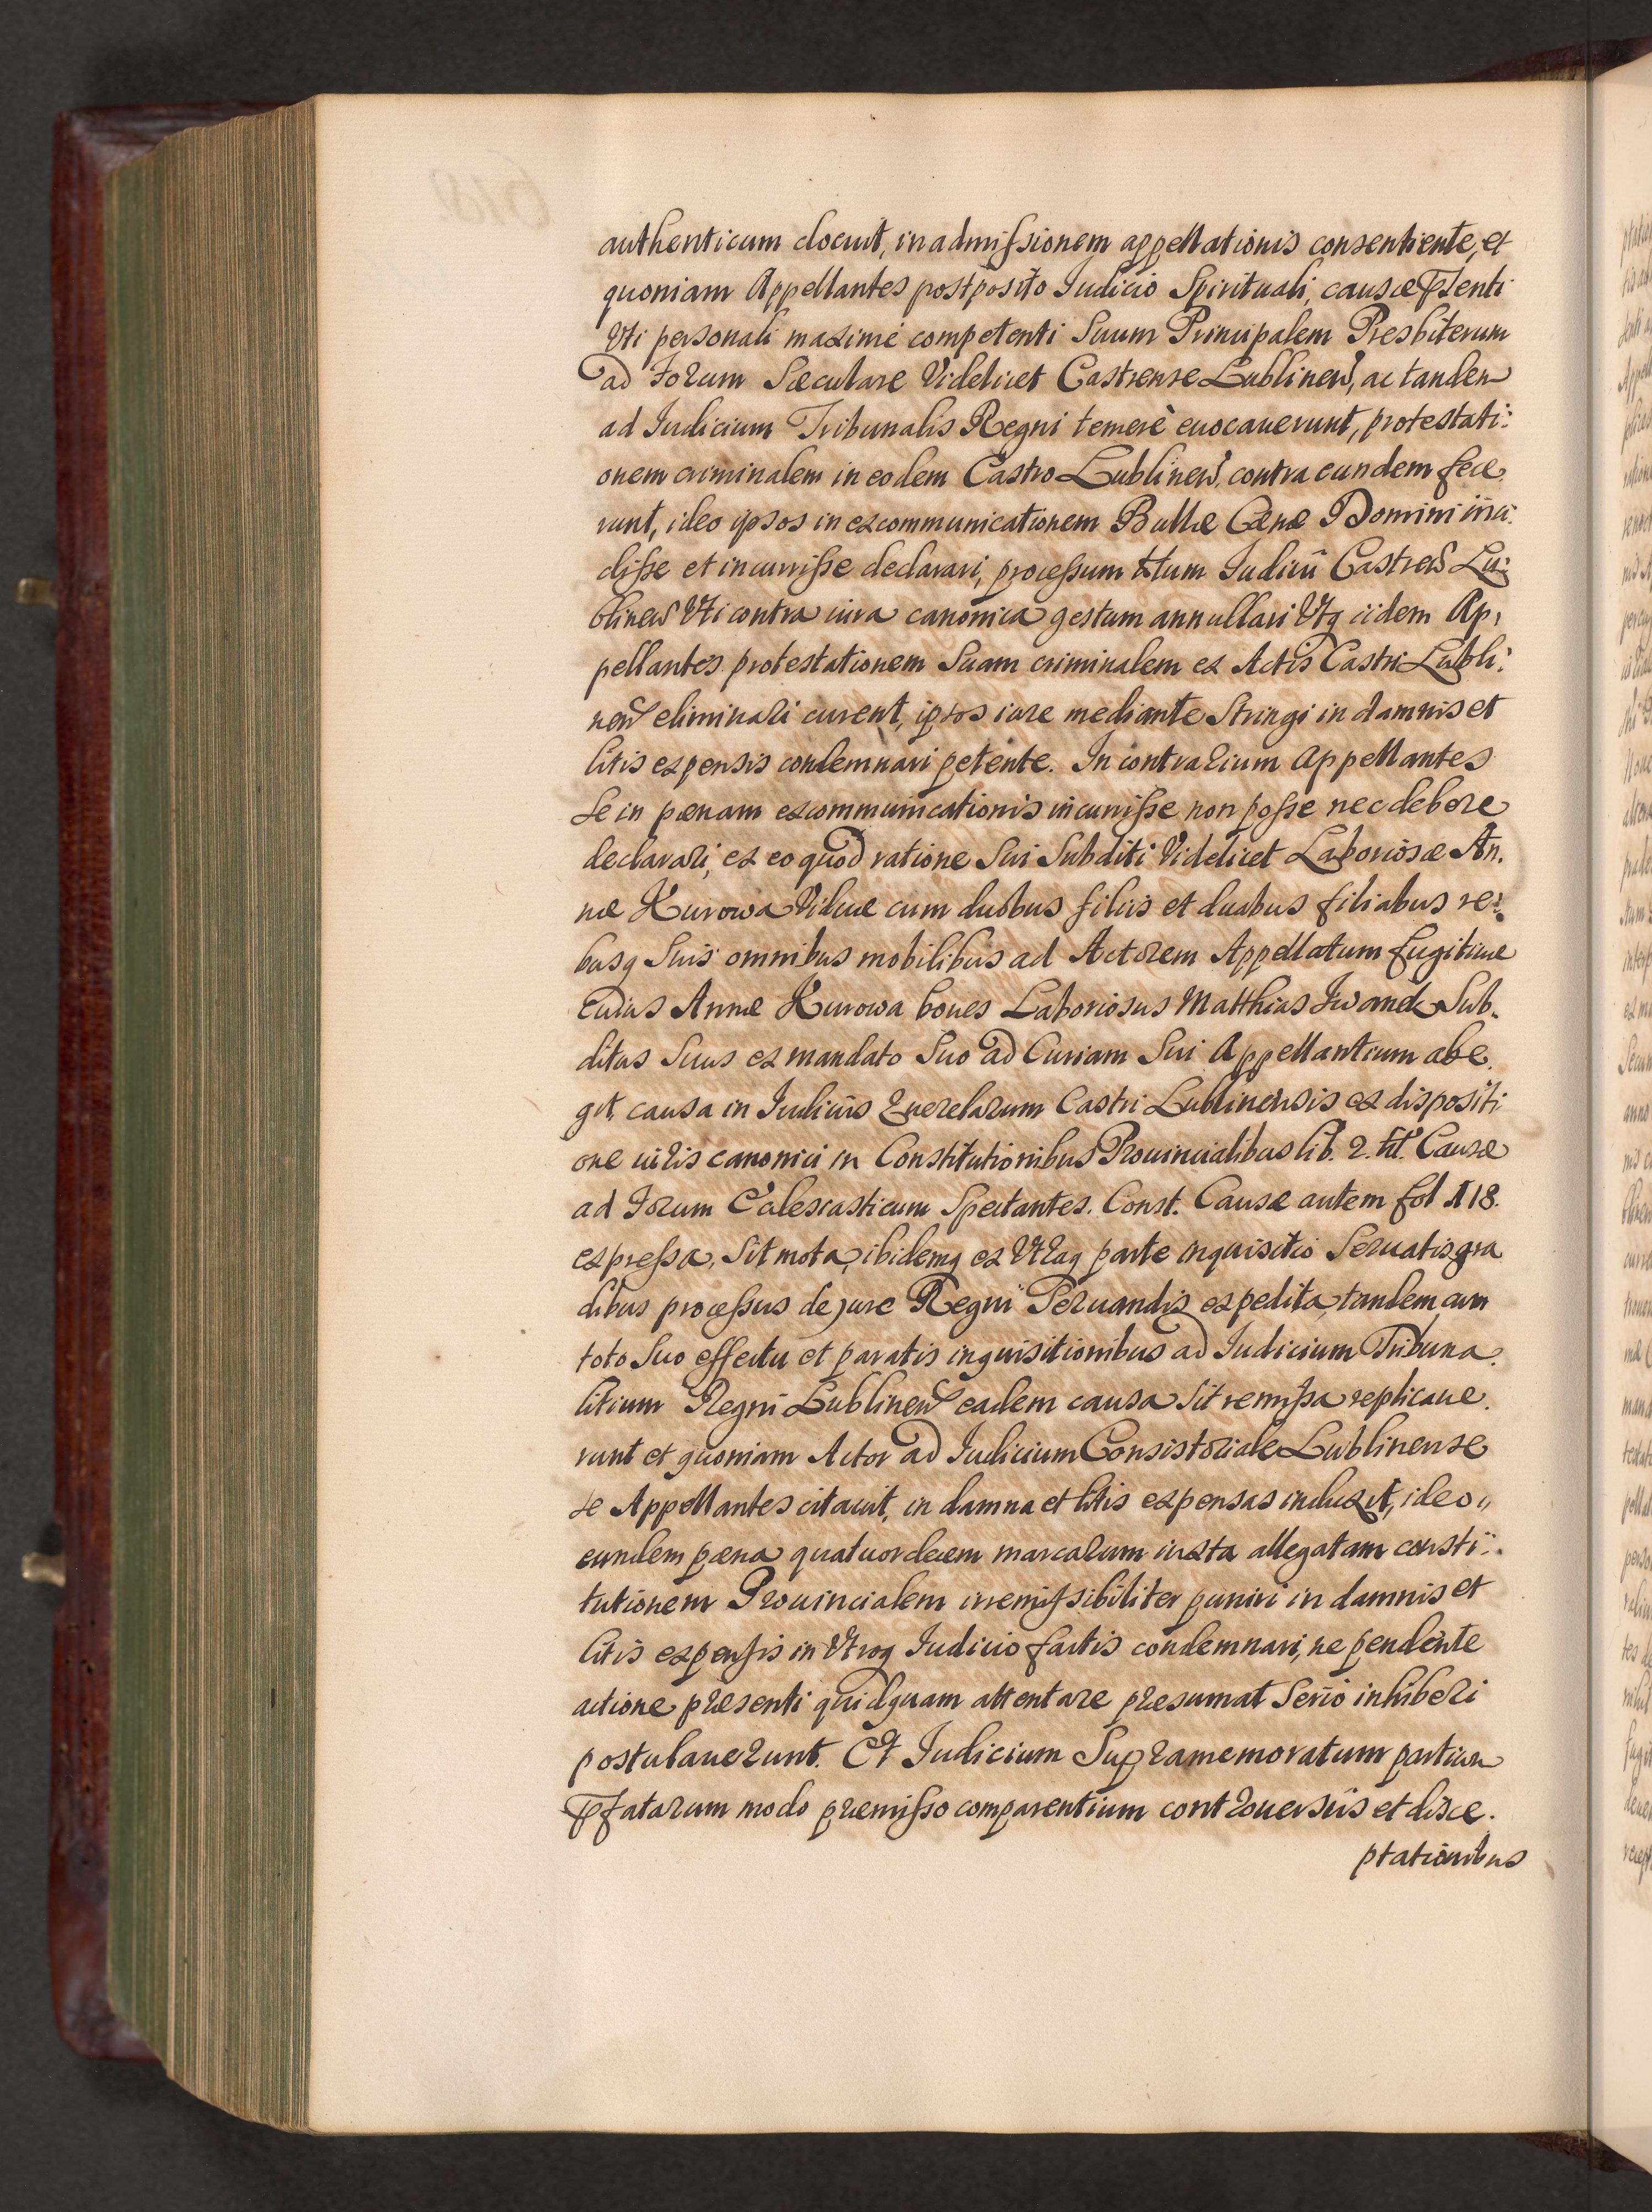 authenticum docuit, in admissionem appellationis consentiente, et
quoniam Appellantes postposito Iudicio Spirituali, causæ pſenti
Vti personali maxime competenti Suum Principalem Presbiterum
ad Forum Sæculare Videlicet Castrense Lublinen̄, ac tandem
ad Iudicium Tribunalis Regni temerè euocauerunt, protestati:
onem criminalem in eodem Castro Lublinen̄, contra eundem fece
runt, ideo ipsos in excommunicationem Bullæ Cænæ Domini inci:
disse et incurrisse declarari, processum Iudicii Castren̄ Lu:
blinen̄ Vti contra iura canonica gestum annullari Vtq iidem Ap,
pellantes protestationem Suam criminalem ex Actis Castri Lubli:
nen̄ eliminari curent, ipsos iure mediante Stringi in damnis et
litis expensis condemnari petente. In contrarium Appellantes
Se in pœnam excommunicationis incurrisse non posse nec debere
declarari, ex eo quod ratione Sui Subditi Videlicet Laboriosæ An.
næ Kurowa Viduæ cum duobus filiis et duabus filiabus re:
busq Suis omnibus mobilibus ad Actorem Appellatum fugitiuæ
cuius Annæ Kurowa boues Laboriosus Matthias Iwanek Sub.
ditus Suus ex mandato Suo ad Curiam Sui Appellantium abe.
git, causa in Iudiciis Querelarum Castri Lublinensis ex dispositi
one iuris canonici in Constitutionibus Prouincialibus lib. 2. tit. Causæ
ad Forum Eclesiasticum Spectantes. Const. Causæ autem fol 118.
expressa, Sit mota, ibidemq ex Vtraq parte inquisitio Seruatis gra
dibus processus de jure Regni Seruandis expedita, tandem cum
toto Suo effectu et paratis inquisitionibus ad Iudicium Tribuna.
litium Regni Lublinen̄ eadem causa Sit remissa replicaue.
runt et quoniam Actor ad Iudicium Consistoriale Lublinense
Se Appellantes citauit, in damna et litis expensas induxit, ideo,,
eundem pœna quatuordecem marcarum iuxta allegatam consti:
tutionem Prouincialem irremissibiliter puniri in damnis et
litis expensis in Vtroq Iudicio factis condemnari, ne pendente
actione præsenti quidquam attentare præsumat Serio inhiberi
postulauerunt. Et Iudicium Supramemoratum partium
pfatarum modo præmisso comparentium controuersiis et disce.
ptationibus